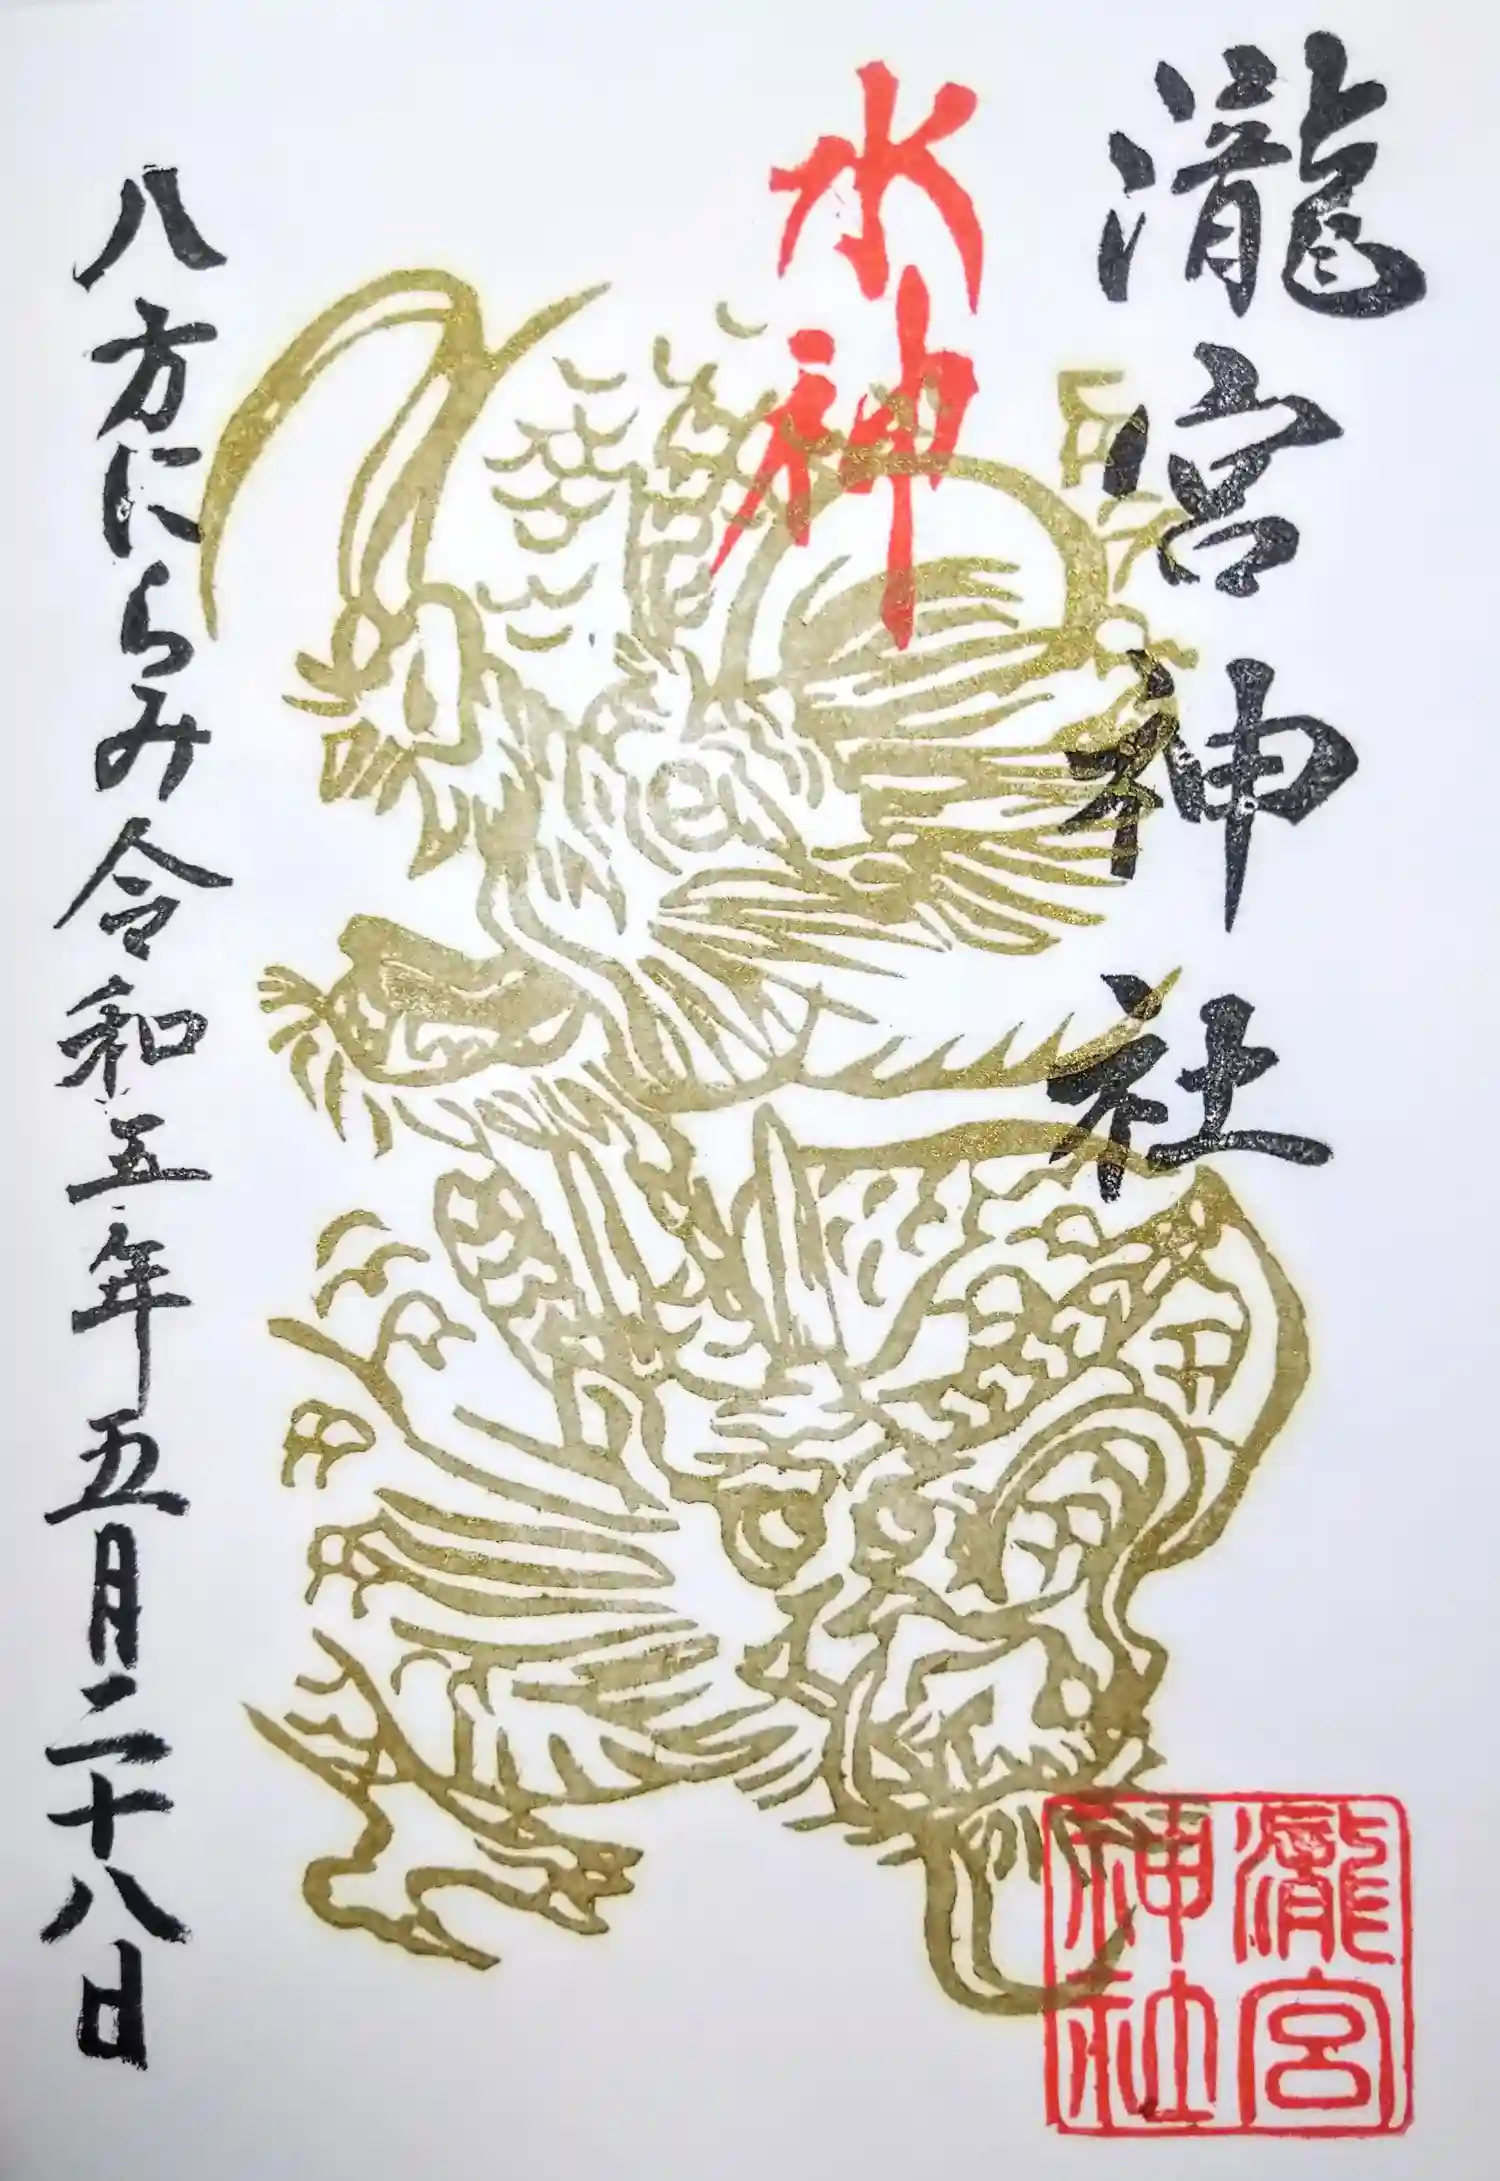 瀧宮神社
水神
八方にらみ
令和五年五月二十八日
瀧宮
神社